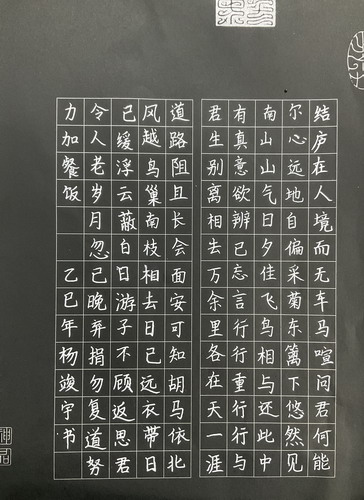 结庐在人境而无车马喧问君何能
尔心远地自偏采菊东篱下悠然见
南山山气日夕佳飞鸟相与还此中
有真意欲辨已忘言行行重行行与
君生别离相去万余里各在天一涯
道路阻且长会面安可知胡马依北
风越鸟巢南枝相去日已远衣带日
已缓浮云蔽白日游子不顾返思君
令人老岁月忽已晚弃捐勿复道努
力加餐饭
乙巳年杨竣宇书